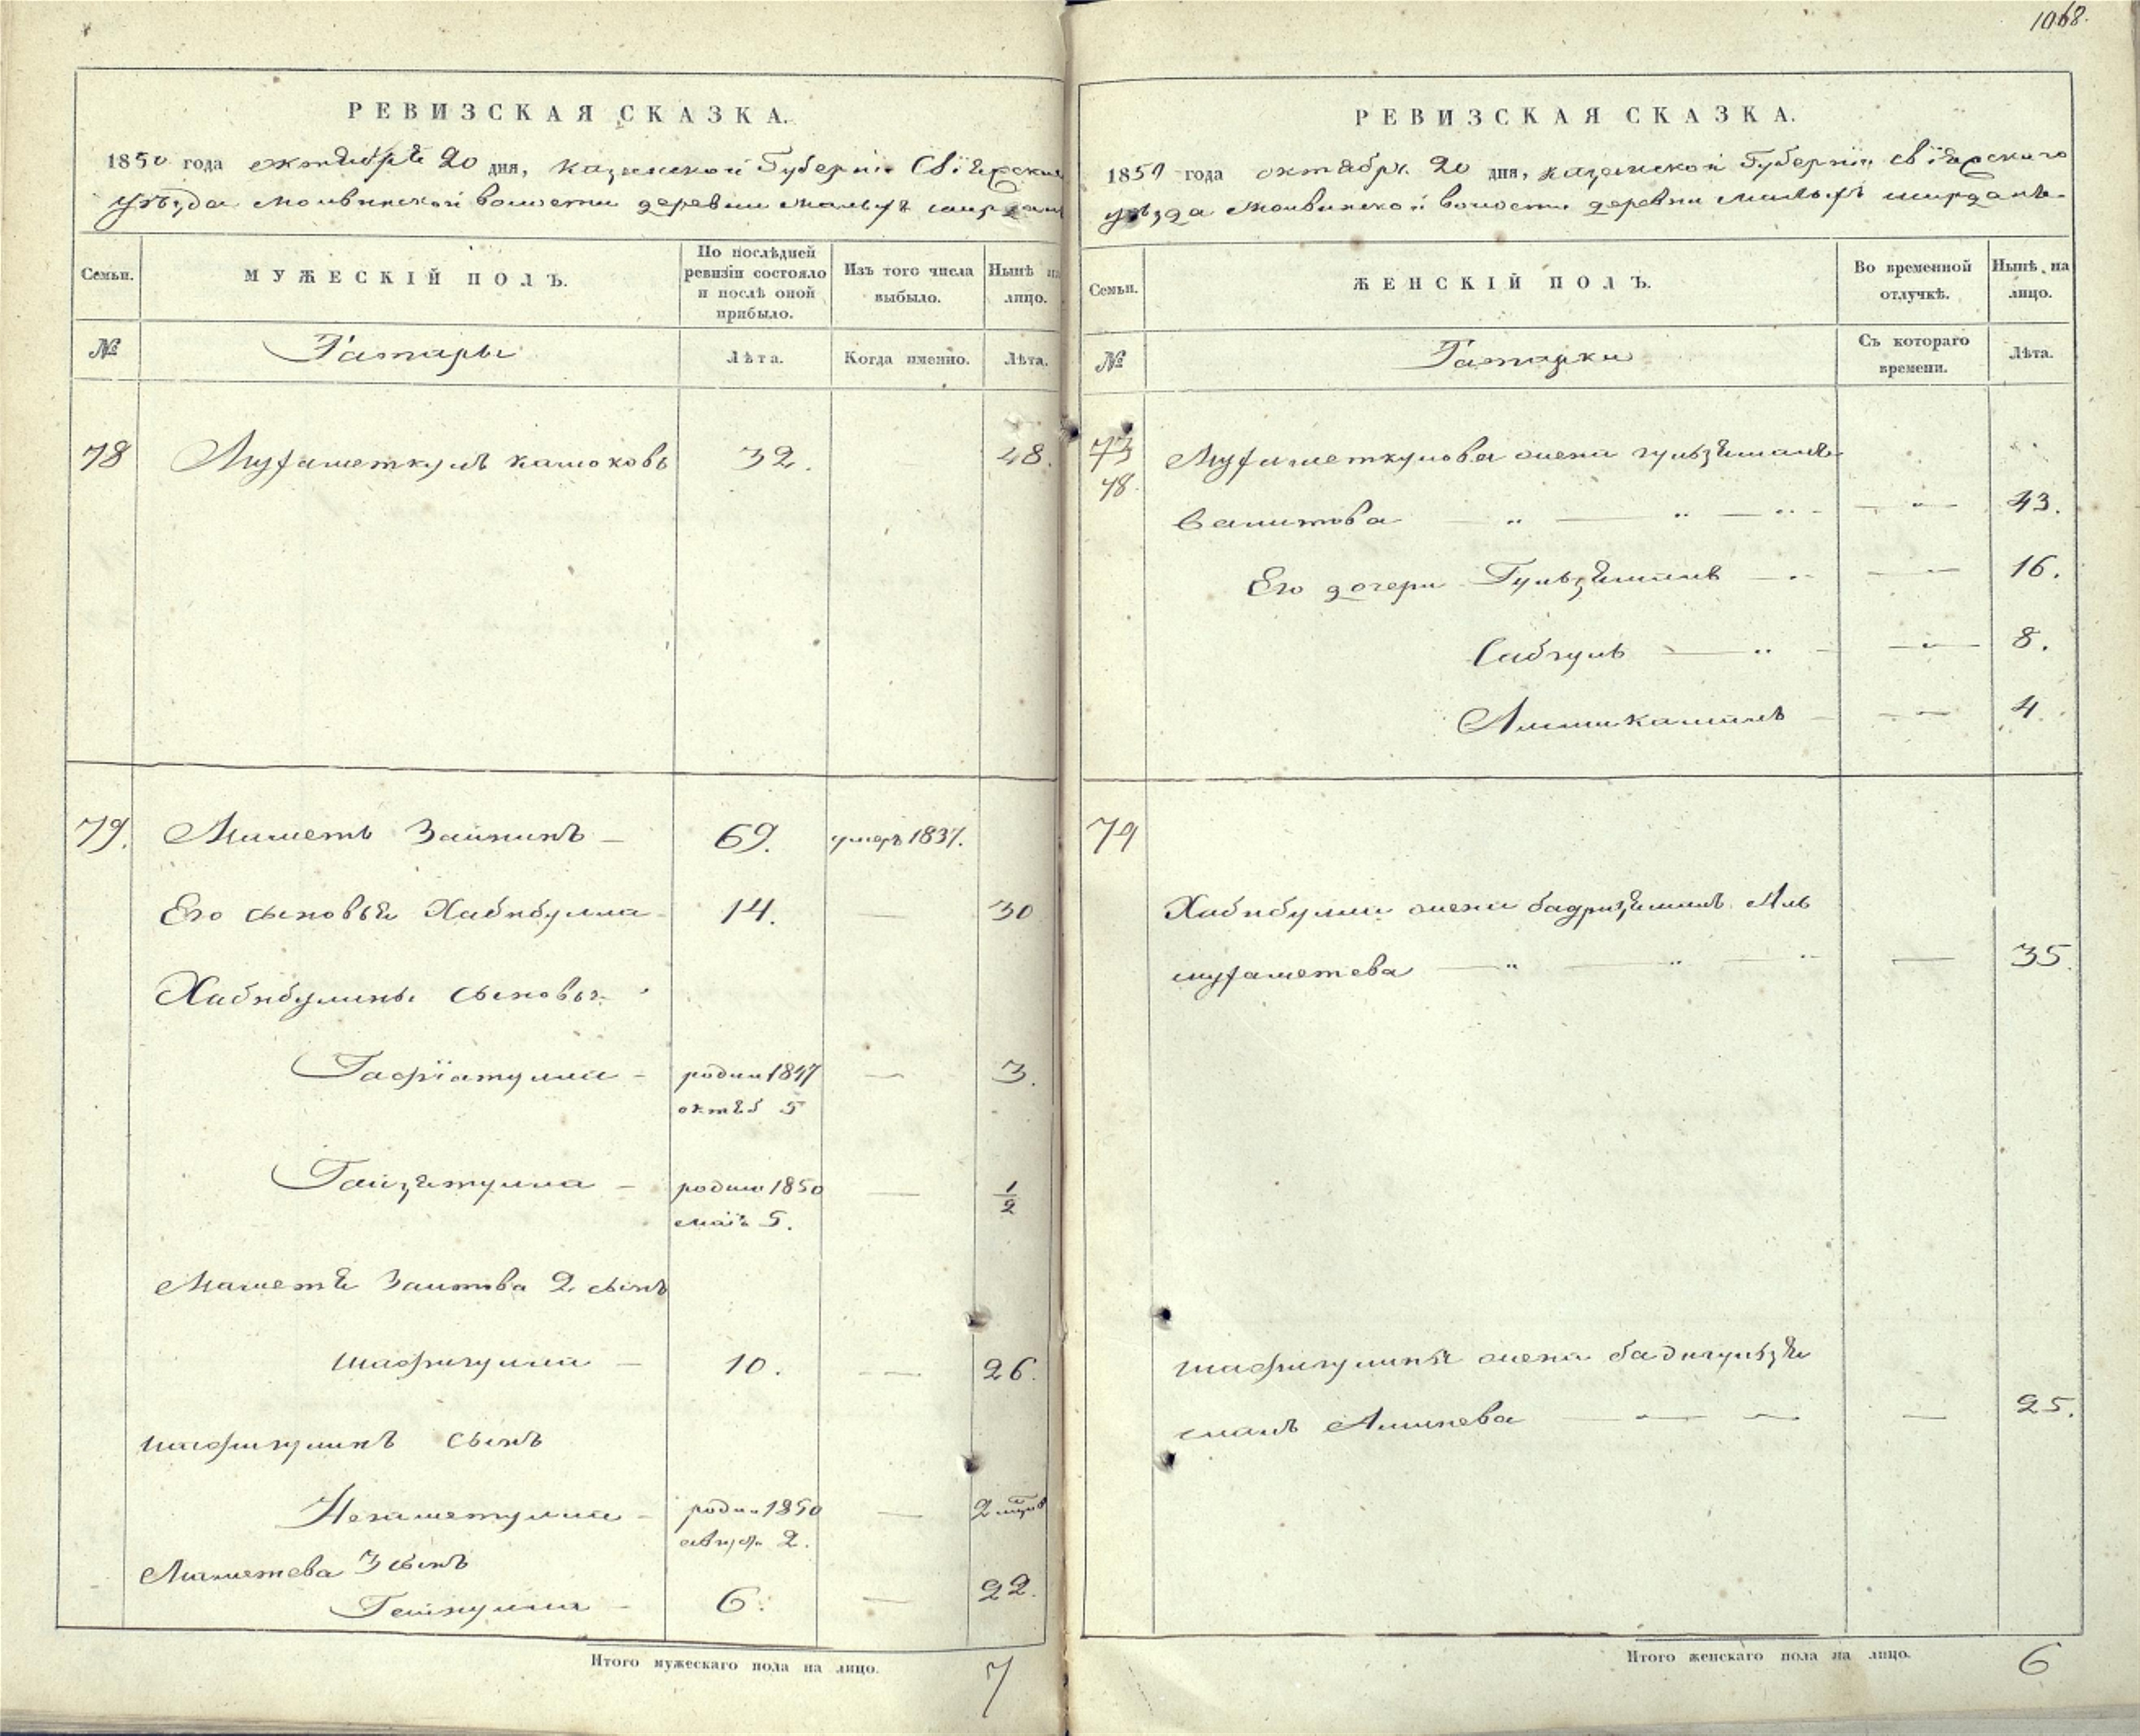 1068.
РЕВИЗСКАЯ СКАЗКА.
1850 года октября 20 дня, казанской Губернiи Свiяжскаго
уѣзда молвинской волости деревни малыхъ ширданъ
Семьи.
МУЖЕСКIЙ ПОЛЪ.
По послѣдней ревизiи состояло и послѣ оной прибыло.
Изъ того числа выбыло.
Нынѣ на лицо.
№
Татары
Лѣта.
Когда именно.
Лѣта.
78 Мухаметкулъ 32. 48.
79. Маметь 69. умеръ 1837.
Его сыновья Хабибулла 14. 30
Хабибулины сыновья
родил 1847 3.
октяб 5
родил 1850 1/2
маiя 5.
2 сынъ
Шафигулла 10. 26.
Шафигулинъ сынъ
Негаметулла родил 1850
август 2.
Маметева 3 сынъ
6. 22.
Итого мужескаго пола на лицо. 7
РЕВИЗСКАЯ СКАЗКА.
1850 года октября 20 дня, казанской Губернiи свiяжскаго
уѣзда молвинской волости деревни малыхъ ширданъ
Семьи.
ЖЕНСКIЙ ПОЛЪ.
Во временной отлучкѣ.
Нынѣ на лицо.
№
Татарки
Съ котораго времени.
Лѣта.
73
78. Мухаметкулова жена гульзямаль
43.
Его дочери 16.
Сабгуль 8.
4.
79
Хабибуллы жена Аль
мухаметева 35.
Шафигулины жена бадигульзя
маль 25.
Итого женскаго пола на лицо. 6